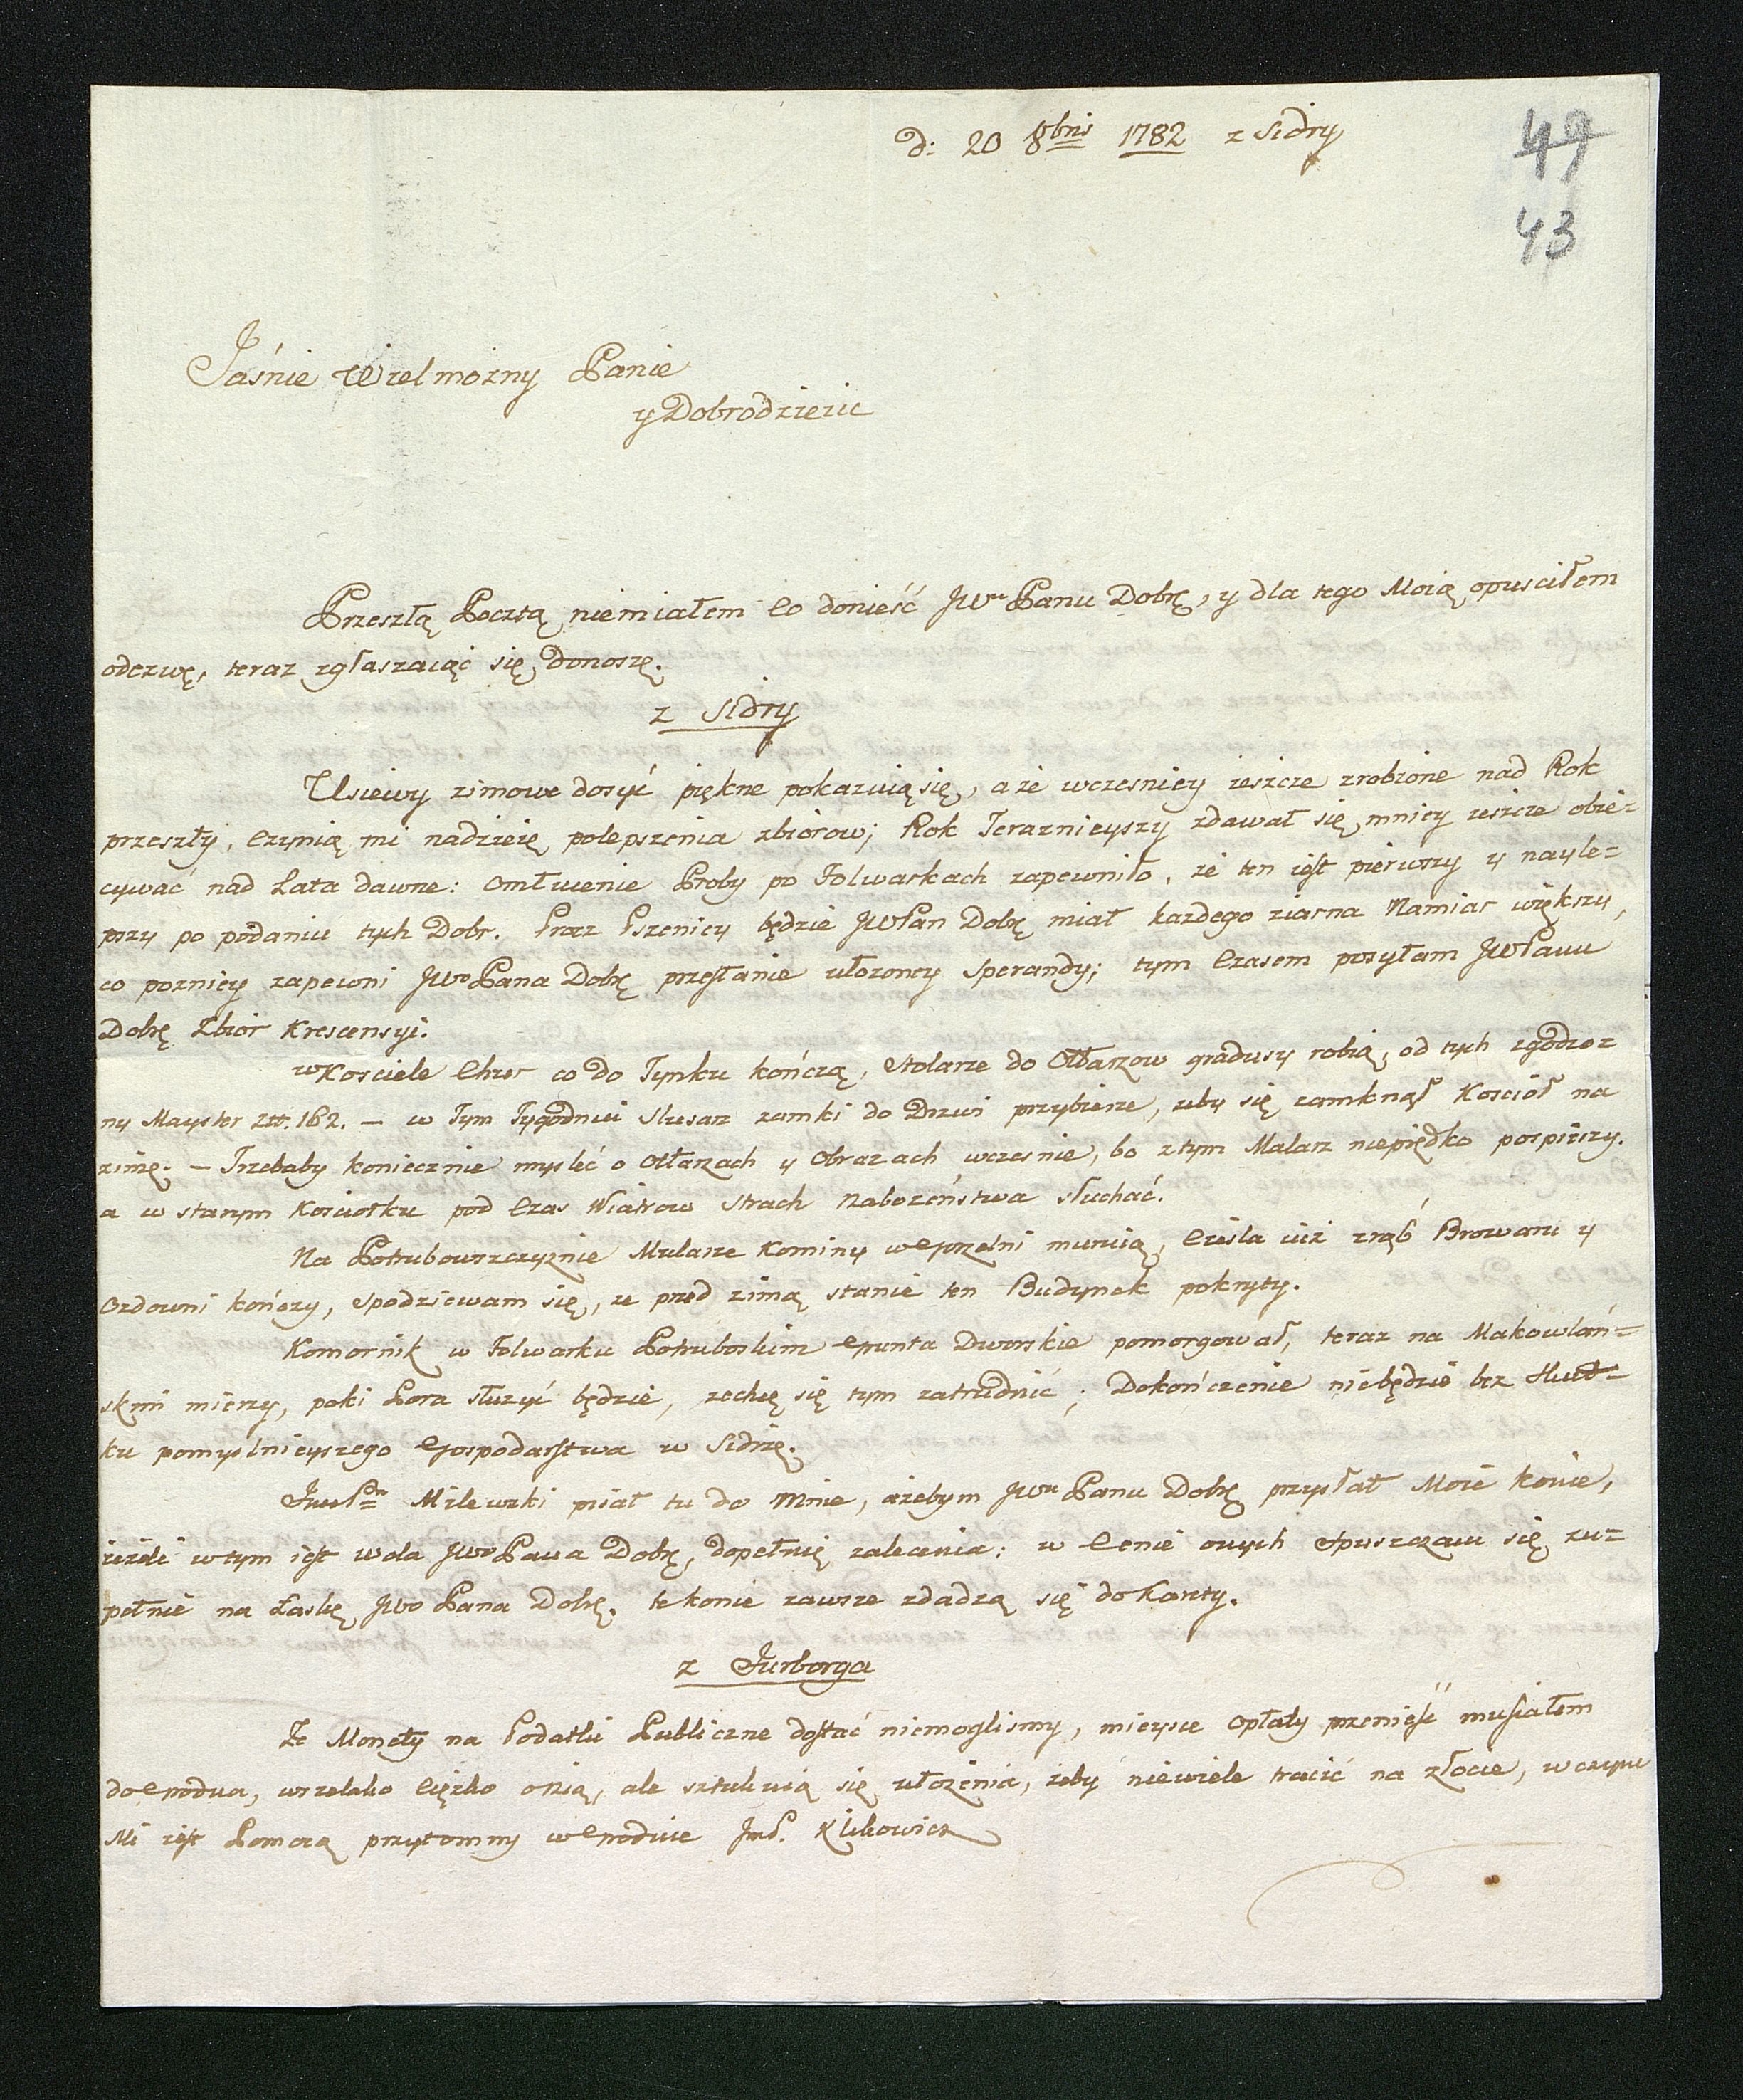 d: 20 8bris 1782 z Sidry
49
43
Jaśnie Wielmożny Panie
y Dobrodzieiu
Przeszłą Pocztą niemiałem Co donieść JWu Panu Dobrę, y dla tego Moią opusciłem
odezwę, teraz zgłaszaiąc się, Donoszę.
z Sidry
Usiewy zimowe dosyć piękne pokazuią się, a że wczesniey ieszcze zrobione nad Rok
przeszły, Czynią mi nadzieię polepszenia zbiorow; Rok Teraznieyszy zdawał się mniey ieszcze obie=
cywać nad Lata dawne: Omłucenie Proby po Folwarkach zapewniło, że ten iest pierwszy y nayle=
przy po podaniu tych Dobr. Prócz Pszenicy będzie JWPan Dobrę miał każdego ziarna Namiar większy,
co pozniey zapewni JWo Pana Dobrę przesłanie ułożoney Sperandy; tym Czasem posyłam JWPanu
Dobrę Zbiór Krescensyi.
w Kosciele Chor co do Tynku kończą, Stolarze do Ołtarzow gradusy robią, od tych zgodzo=
ny Mayster Ztt. 162. — w Tym Tygodniu Slusarz zamki do Drzwi przybierze, żeby się zamknął Kosciół na
zimę. — Trzebaby koniecznie mysleć o Ołtarzach y Obrazach wczesnie, bo z tym Malarz nieprędko pospieszy.
a w starym Kosciołku pod Czas Wiatrow Strach Nabożeństwa słuchać.
Na Potrubowszczyznie Mularze Kominy w Gorzelni muruią, Cieśla iuż zrąb Browaru y
Ozdowni kończy, spodziewam się, że przed zimą stanie ten Budynek pokryty.
Komornik w Folwarku Potruboskim Grunta Dworskie pomorgował, teraz na Makowlań=
skim mierzy, poki Pora służyć będzie, zechcę się tym zatrudnić; Dokończenie niebędzie bez Skut=
ku pomyslnieyszego Gospodarstwa w Sidrze.
JmPn Milewski pisał tu do Mnie, ażebym JWu Panu Dobrę przysłał Moie konie,
ieżeli w tym iest wola JWo Pana Dobrę, dopełnię zalecenia: w Cenie onych Spuszczam się zu=
pełnie na Łaskę JWo Pana Dobrę. te konie zawsze zdadzą się do Karety.
z Jurborga
Że Monety na Podatki Publiczne dostać niemoglismy, mieysce Opłaty przenieść musiałem
do Grodna, wszelako Ciężko o nią, ale sztukuią się ułożenia, żeby niewiele tracić na złocie, w czym
Mi iest Pomocą przytomny w Grodnie JmP. Klukowicz